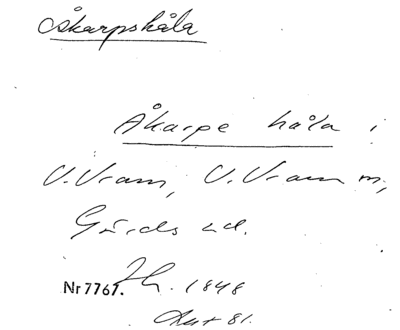 Åkarpshåla
Åkarpe håla i
V. Vram, V. Vram m,
Gärds hd.
Nr 7767. 1848
81.